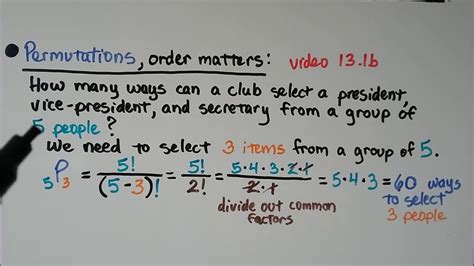 Permutations, order matters: video 13.1b
How many ways can a club select a president,
vice-president, and secretary from a group of
5 people?
We need to select 3 items from a group of 5.
₅P₃ = 5!/(5-3)! = 5!/2! = 5·4·3·2·1/2·1 = 5·4·3 = 60 ways
to select
3 people
divide out common
factors